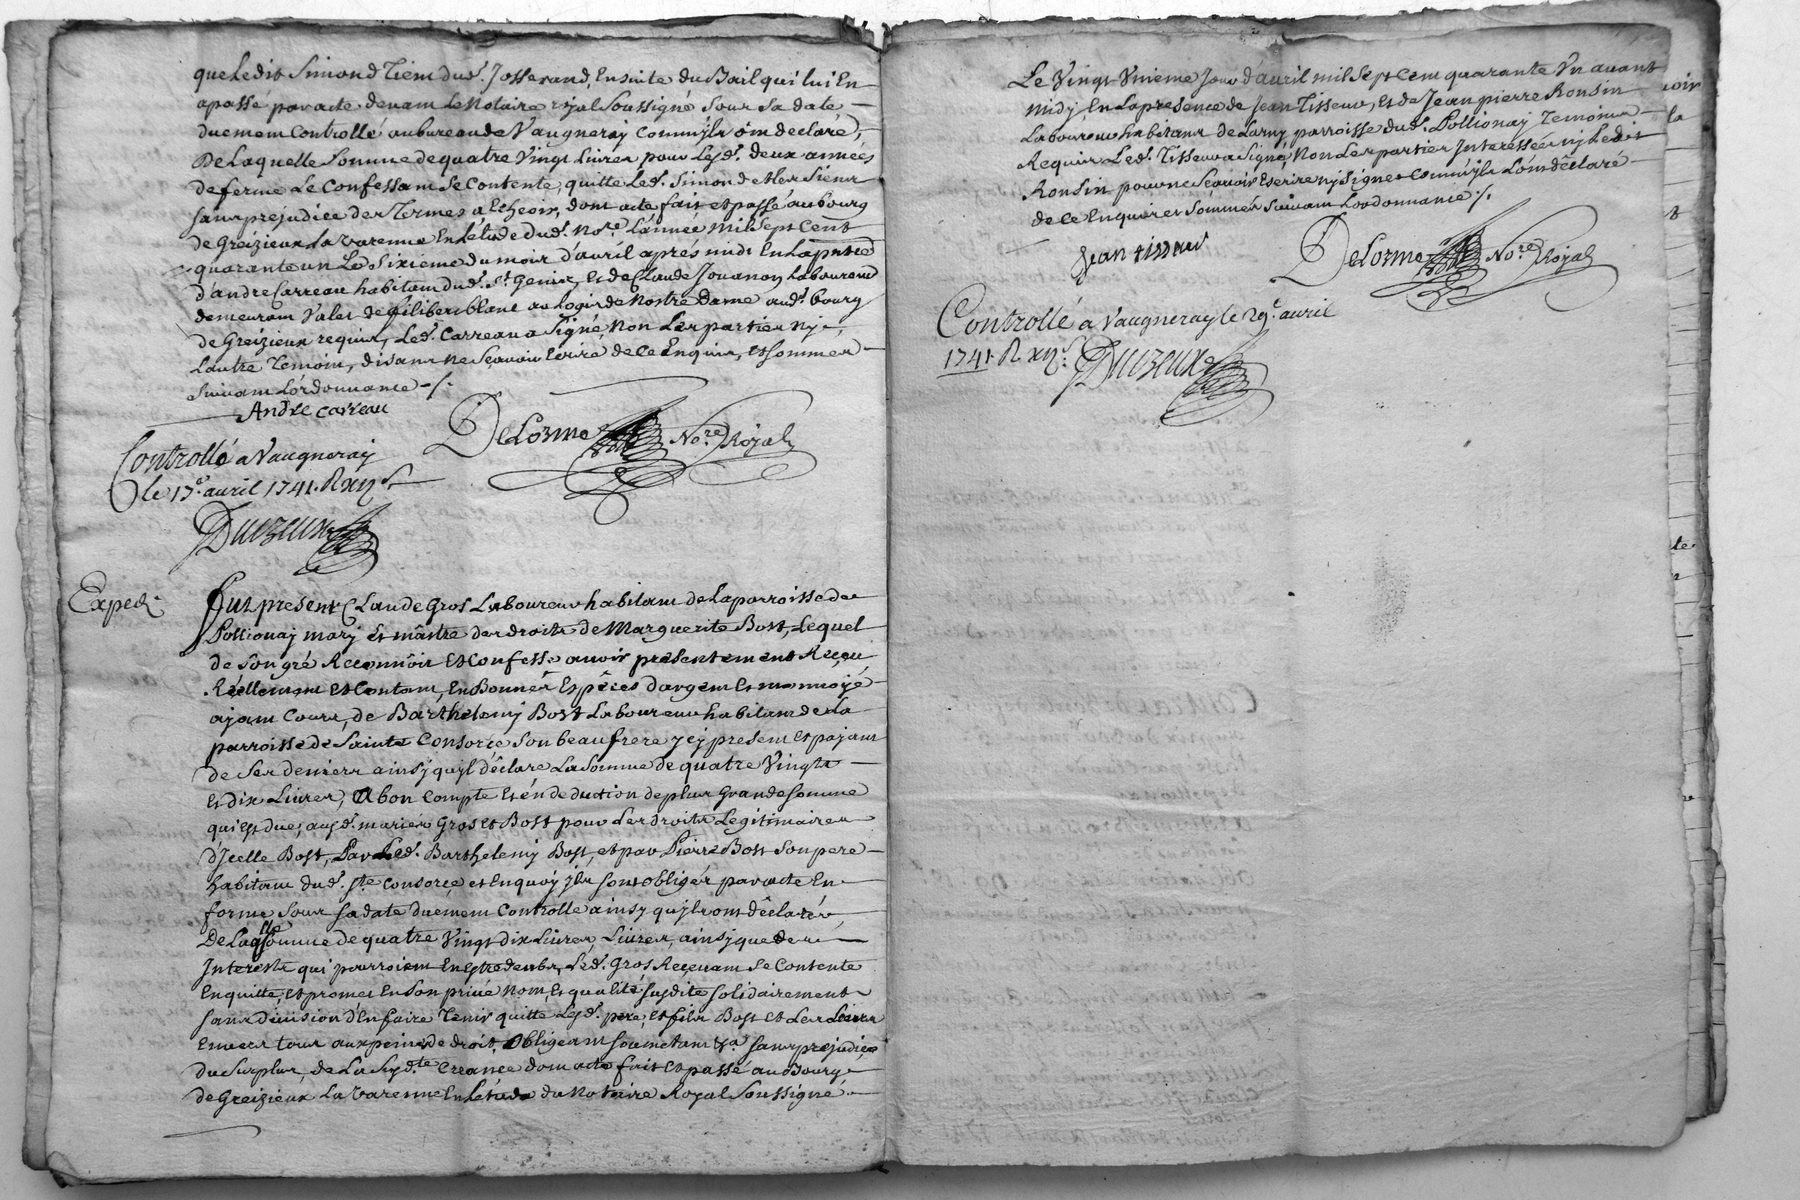 que Ledit Simond Tient dud. Josserand, Ensuite du Bail qui lui En
a passé par acte devant Le Notaire rojal Soussigné Sous Sa date
duement Controllé au bureau de Vaugneraij Comm'jls ont declaré,
De Laquelle Somme de quatre Vingt Livres pour Lesd. deux années
de ferme Le Confessant Se Contente, quitte Led. Simon de et les Siens
Sans prejudice des Termes a Echeoir, dont acte fait et passé au bourg
de Greizieux La Varenne En Létude dud. No.re L'année Mil Sept Cent
quarante un Le Sixieme du mois d'avril aprés midi En La p.nce
d'andre Carreau habitant dud. St. Genis, Et de Claude Jouanon Laboureur
demeurant Valet de filibert blanc au Logis de Nostre Dame aud. bourg
de Greizieux requis, Led. Carreau a Signé, Non Les parties Nj
Lautre Temoin, disant ne Sçavoir Ecrire de Ce Enquis, et Sommer
Suivant Lórdonnance -/.
Andre carreau
DeLorme No.re Rojal
Controllé a Vaugneraij
le 17.e avril 1741. R xij s.
Duezeux
Exped.
Fut present Claude Gros Laboureur habitant de La parroisse de
Pollionaij marj Et maître des droits de Marguerite Bost, Lequel
de Son gré Reconnoit Et Confesse avoir presentement Reçeu
Réellement et Contant, En Bonnes Espêces d'argent Et monnoyé
ajant Cours, de Barthelemj Bost Laboureur habitant de La
parroisse de Sainte Consorce Son beau frere jcj present Et pajant
de Ses deniers ainsj qu'jl déclare La Somme de quatre Vingts
Et dix Livres, a bon Compte Et én deduction de plus Grande Somme
qui Est due, ausd. mariés Gros et Bost pour Les droits Legitimaires
d'Jcelle Bost, Par Led. Barthelemj Bost, et par Pierre Bost Son pere
habitant dud. Ste. Consorce, et En quoij jls Sont Obligés par acte En
forme Sous Sa date duement Controlle ainsy qu'jls ont déclaré,
De Laqlle Somme de quatre Vingt dix Livres, Livres, ainsj que des
Interests qui pourroient En Estre deubs, Led. Gros Reçevant Se Contente
En quitte, et promet En Son privé Nom, Et qualité Susdite Solidairement
Sans division d'En faire Tenir quitte Lesd. pere, Et fils Bost et Les Leurs
Envers tous aux peines de droit, Obligeant soumettant &a. Sans prejudice
du Surplus, de La Susd.te Creance dont acte fait et passé au Bourg
de Greizieux La Varenne En Létude du Notaire Royal Soussigné
Le Vingt Unieme Jour d'avril mil Sept Cent quarante Un avant
midj, En La presence de Jean Tisseur, Et de Jean pierre Ronsin
Laboureurs habitans de Larnj parroisse dud. Pollionaij Temoins
Requis Led. Tisseur a Signé, Non Les parties Interessées nj Ledit
Ronsin pour ne Sçavoir Escrire nj Signer Comm'jls Lónt déclaré
de Ce Enquis et Sommés Suivant Lordonnance /.
Jean tisseur
DeLorme No.re Rojal
Controllé a Vaugneray le 29.e avril
1741. R xij s.
Duezeux